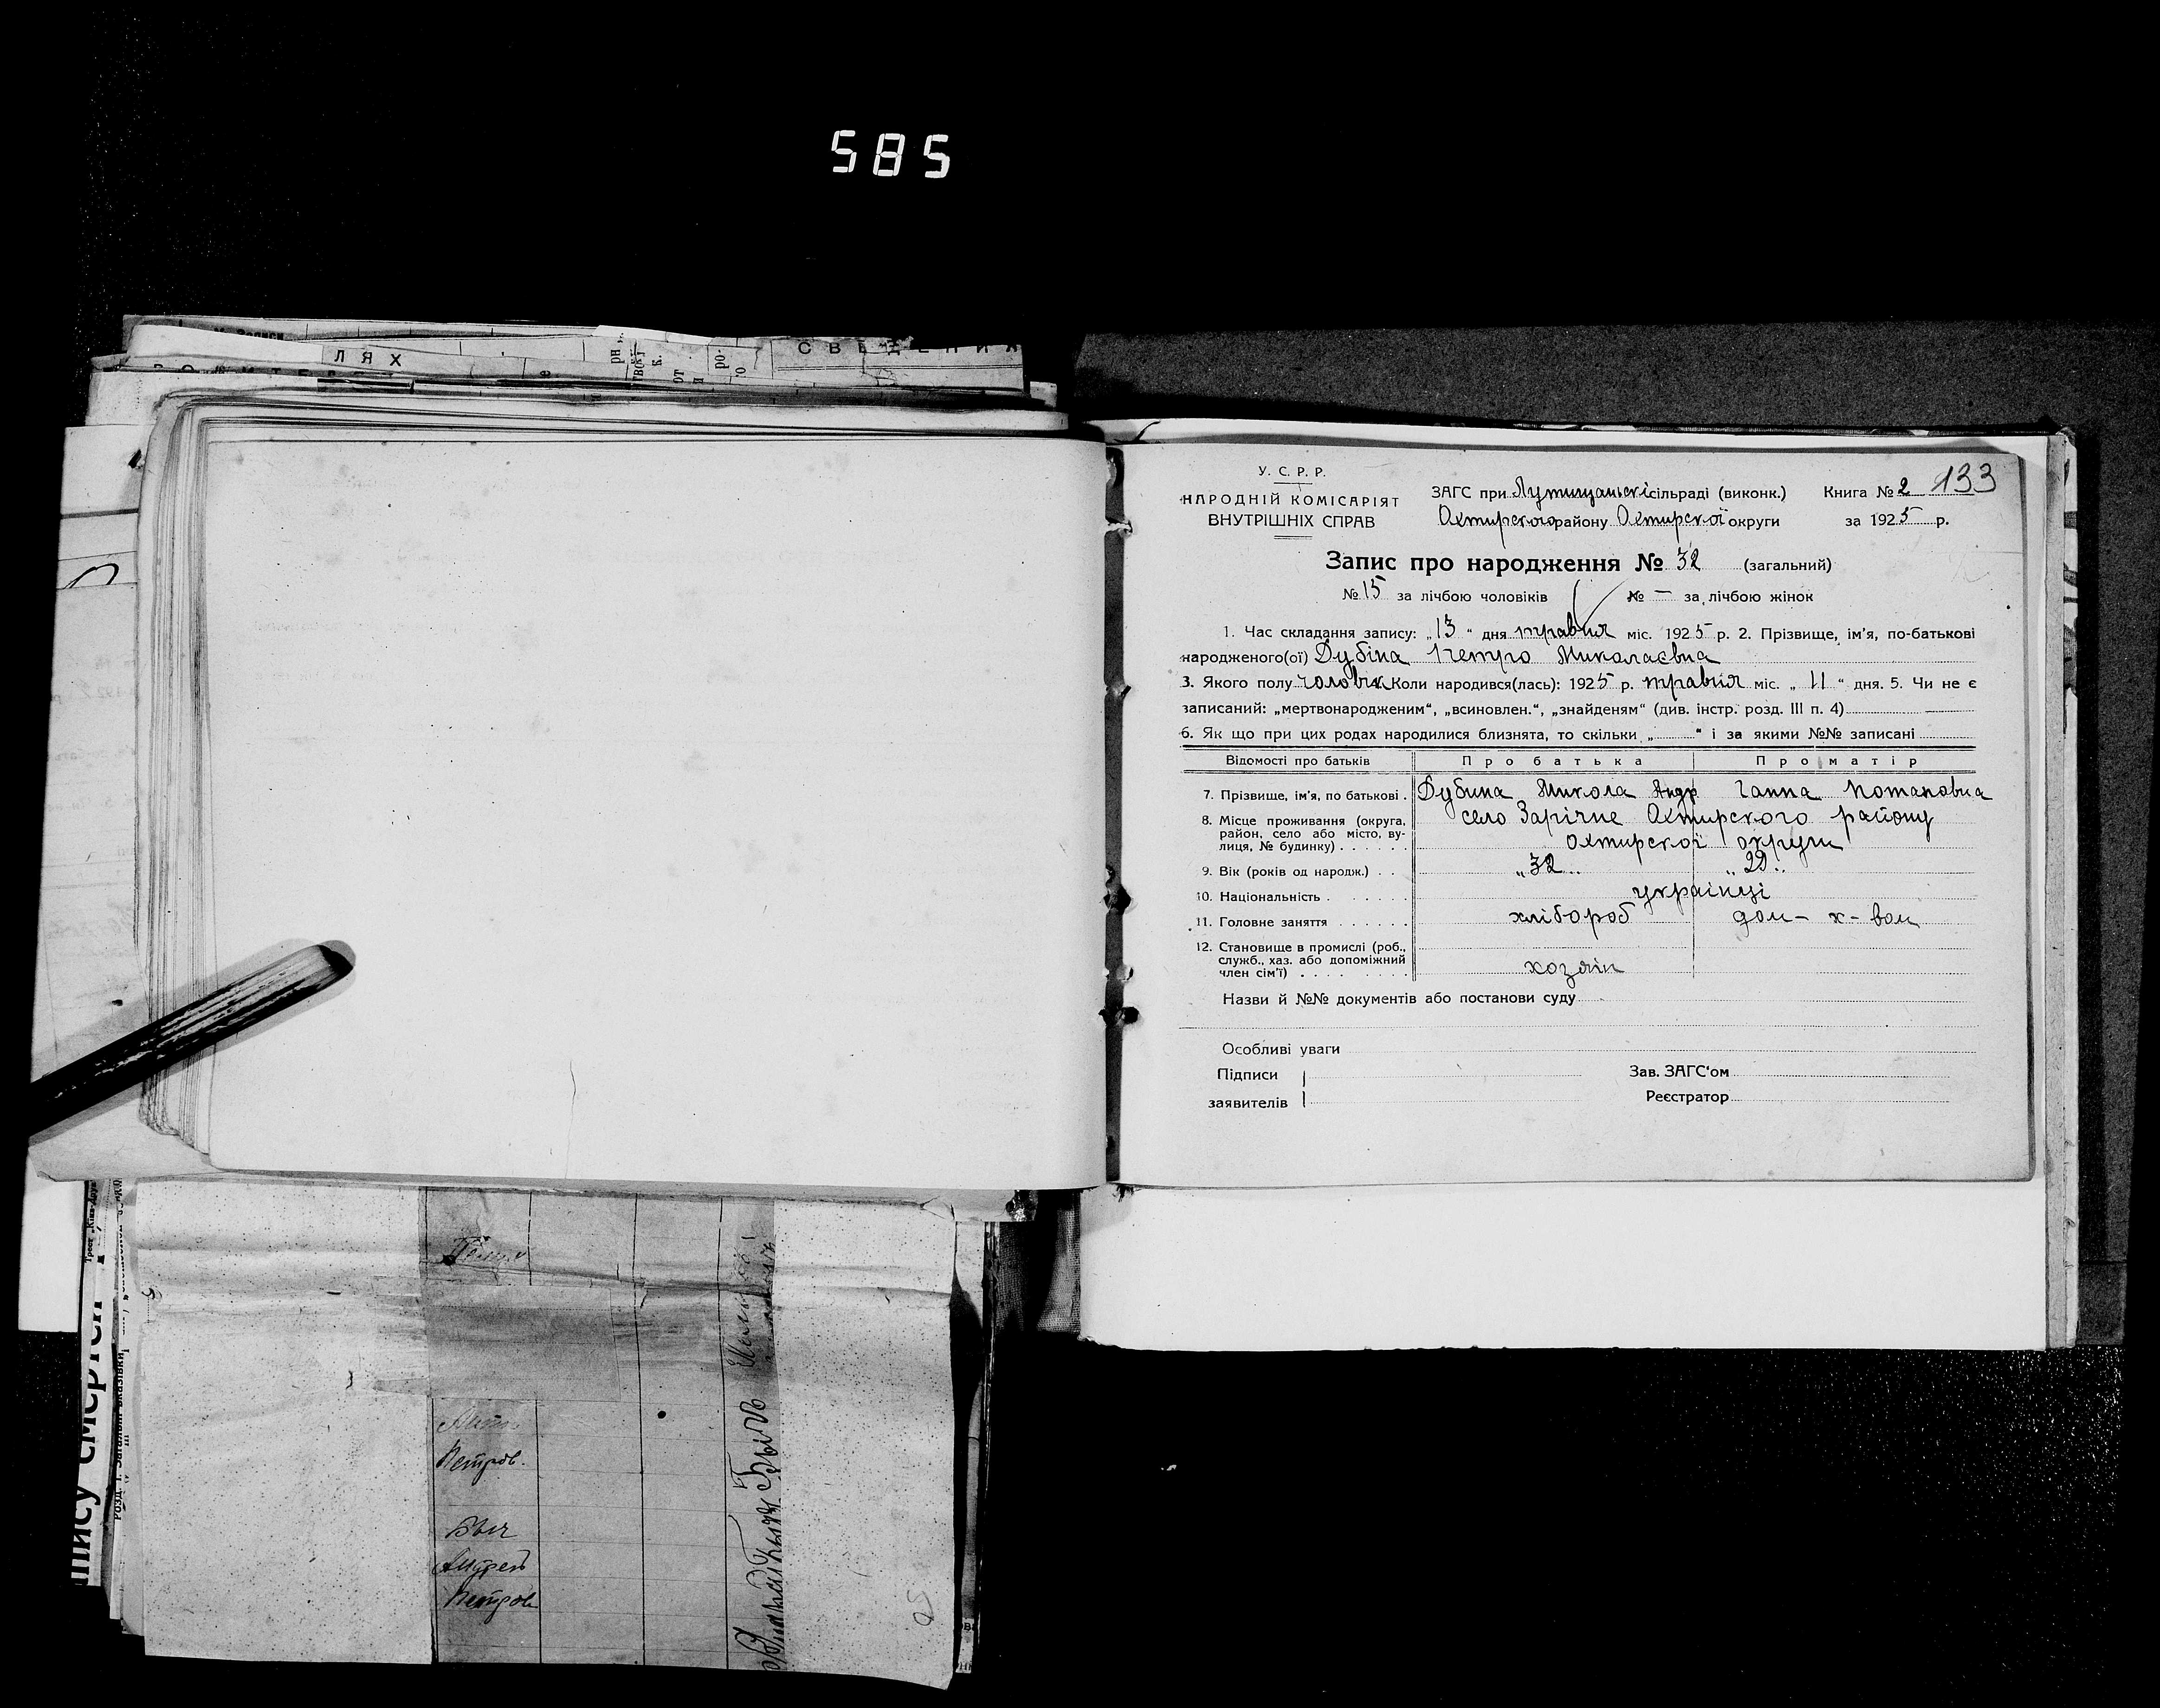 585
ЛЯХ
СВѢДЕНИЯ
У. С. Р. Р.
НАРОДНІЙ КОМІСАРІЯТ
ВНУТРІШНІХ СПРАВ
ЗАГС при Лутищанскі сільраді (виконк.) Книга № 2 133
Охтирського району Охтирскої округи за 1925 р.
Запис про народження № 32 (загальний)
№ 15 за лічбою чоловіків № — за лічбою жінок
1. Час складання запису: „13“ дня травня міс. 1925 р. 2. Прізвище, ім'я, по-батькові
народженого(ої) Дубіна Петро Миколаєвна
3. Якого полу чоловік Коли народився(лась): 1925 р. травня міс. „11“ дня. 5. Чи не є
записаний: „мертвонародженим“, „всиновлен.“, „знайденям“ (див. інстр. розд. III п. 4)
6. Як що при цих родах народилися близнята, то скільки „ “ і за якими №№ записані
Відомості про батьків Про батька Про матір
7. Прізвище, ім'я, по батькові . Дубина Микола Андр Ганна Потаповна
8. Місце проживання (округа, район, село або місто, вулиця, № будинку) . . . . . . село Зарічне Охтирского району
Охтирскої округи
9. Вік (років од народж.) . . „32„ „22„
10. Національність . . . . . . українці
11. Головне заняття . . . . . . хлібороб дом- х- вом
12. Становище в промислі (роб., служб., хаз. або допоміжний член сім'ї) . . . . . . . . хозяін
Назви й №№ документів або постанови суду
Особливі уваги
Підписи
заявителів
Зав. ЗАГС'ом
Реєстратор
Петров.
Андрей
Петров